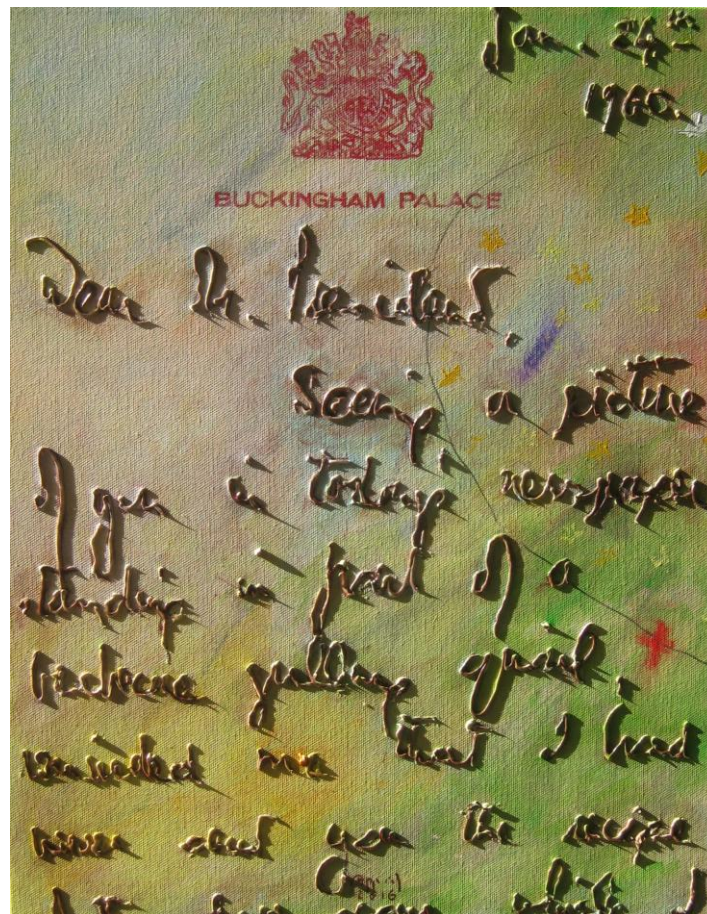 Jan. 24th
1960.
BUCKINGHAM PALACE
Dear Mr. President,
Seeing a picture
of you in today's newspaper
standing in front of a
barbecue grilling quail,
reminded me that I had
never sent you the recipe